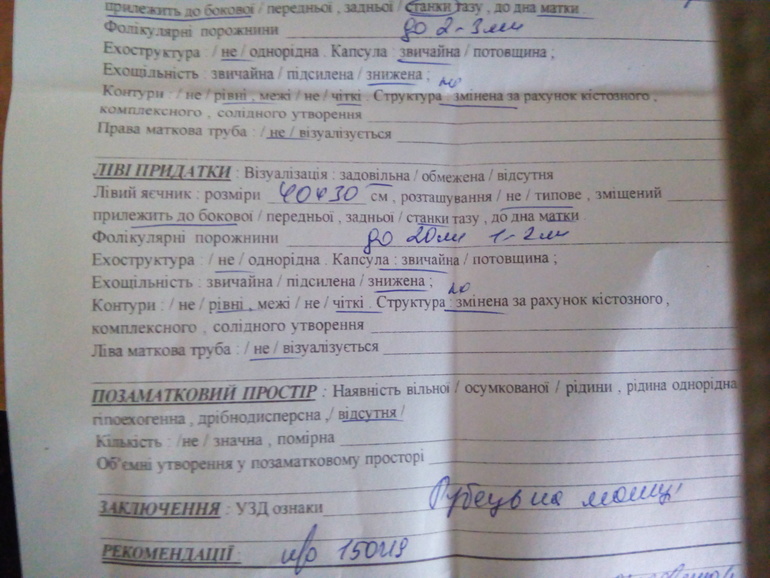 прилежить до бокової / передньої , задньої / станки тазу , до дна матки
Фолікулярні порожнини до 2-3мм
Ехоструктура / не / однорідна . Капсула : звичайна / потовщина ;
Ехощільність : звичайна / підсилена / знижена ;
Контури : / не / рівні , межі / не / чіткі . Структура : змінена за рахунок кістозного ,
комплексного , солідного утворення
Права маткова труба : / не / візуалізується
ЛІВІ ПРИДАТКИ : Візуалізація : задовільна / обмежена / відсутня
Лівий яєчник : розміри 40х30 см , розташування / не / типове , зміщений
прилежить до бокової / передньої , задньої / станки тазу , до дна матки
Фолікулярні порожнини до 20мм 1-2мм
Ехоструктура : / не / однорідна . Капсула : звичайна / потовщина ;
Ехощільність : звичайна / підсилена / знижена ;
Контури : / не / рівні , межі / не / чіткі . Структура : змінена за рахунок кістозного ,
комплексного , солідного утворення
Ліва маткова труба : / не / візуалізується
ПОЗАМАТКОВИЙ ПРОСТІР : Наявність вільної / осумкованої / рідини , рідина однорідна
гіпоехогенна , дрібнодисперсна ,/ відсутня /
Кількість : /не / значна , помірна
Об'ємні утворення у позаматковому просторі
ЗАКЛЮЧЕННЯ : УЗД ознаки Рубець на матці
РЕКОМЕНДАЦІЇ :